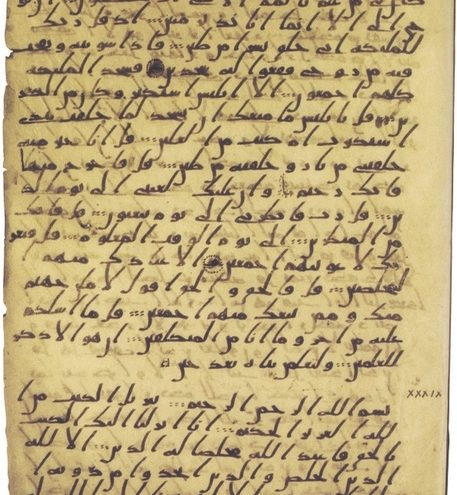 يوحى الي الا انما انا نذير مبين اذ قال ربك
للملئكه اني خلق بشرا من طين فاذا سويته ونفخت
فيه من روحي فقعوا له سجدين فسجد الملئكه
كلهم اجمعون الا ابليس استكبر وكان من الكفر
ين قال يابليس ما منعك ان تسجد لما خلقت بيدي
استكبرت ام كنت من العلين قال انا خير منه
خلقتني من نار وخلقته من طين قال فاخرج منها
فانك رجيم وان عليك لعنتي الى يوم الد
ين قال رب فانظرني الى يوم يبعثون قال فانك
من المنظرين الى يوم الوقت المعلوم قال فبعز
تك لاغوينهم اجمعين الا عبادك منهم
المخلصين قال فالحق والحق اقول لاملن جهنم
منك وممن تبعك منهم اجمعين قل ما اسلكم
عليه من اجر وما انا من المتكلفين ان هو الا ذكر
للعلمين ولتعلمن نباه بعد حين
XXXIX
بسم الله الرحمن الرحيم تنزيل الكتب من ا
لله العزيز الحكيم انا انزلنا اليك الكتب
بالحق فاعبد الله مخلصا له الدين الا لله
الدين الخلص والذين اتخذوا من دونه ا